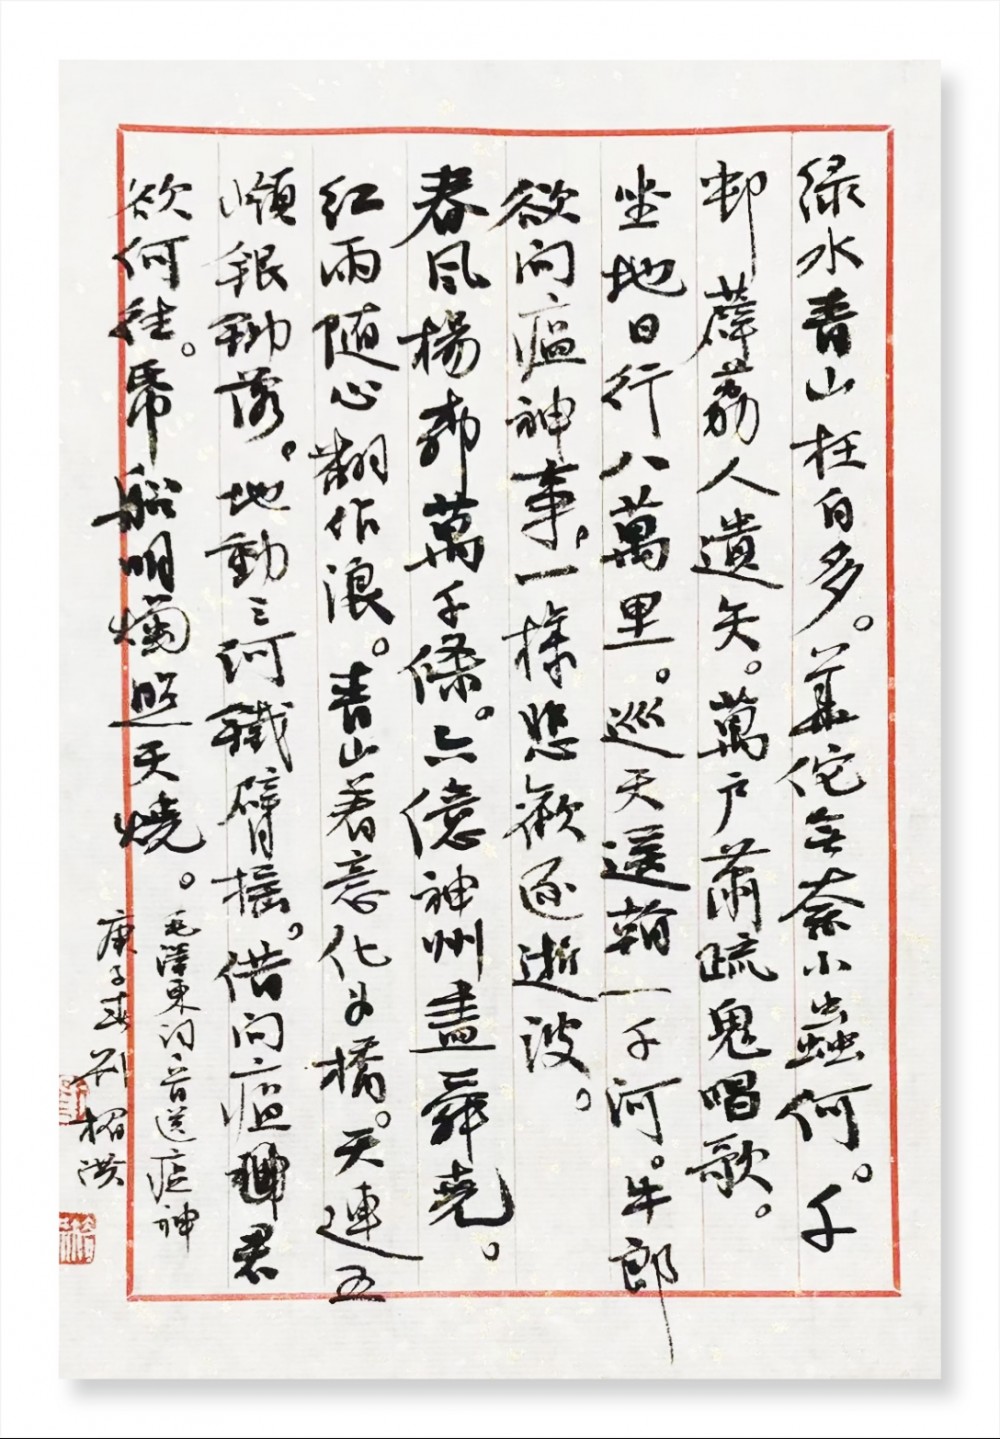 绿水青山枉自多。華佗無奈小蟲何。千
邨薜荔人遺矢。萬户蕭疏鬼唱歌。
坐地日行八萬里。巡天遥看一千河。牛郎
欲问瘟神事。一樣悲歡逐逝波。
春風楊柳萬千條。六億神州盡舜堯。
红雨随心翻作浪。青山着意化为橋。天連五
嶺銀鋤落。地動三河鐵臂摇。借问瘟神君
欲何往。帋船明燭照天燒。
毛澤東词二首送瘟神
庚子春刘楣洪